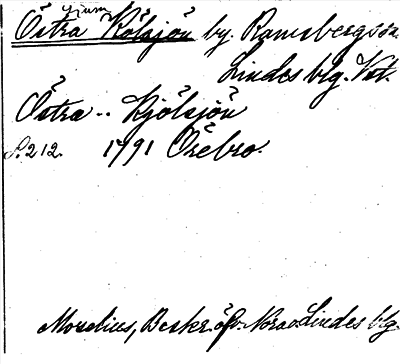 Östra Kölsjön by. Ramsbergs sn.
Lindes blg. Vstl.
Östra -- Kjölsjön
S. 212. 1791 Örebro.
Morelius, Beskr. öfv. Nora o. Lindes blg.